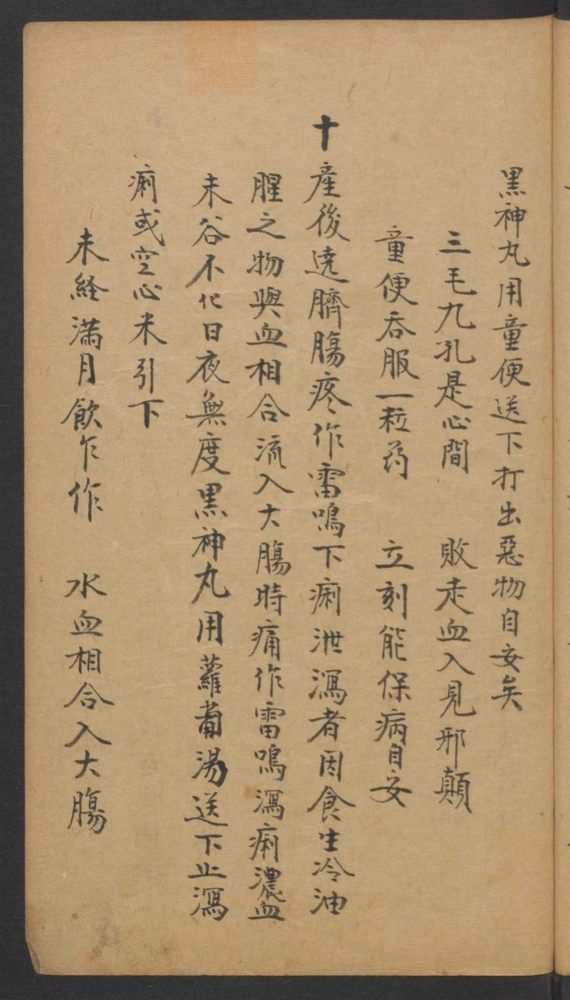 黒神丸用童便送下打出惡物自安矣
三毛九孔是心間　敗走血入見邪顛
童便吞服一粒药　立刻能保病自安
十產後遶臍腸疼作雷鳴下痢泄瀉者因食生冷油
腥之物與血相合流入大腸時痛作雷鳴瀉痢濃血
未谷不化日夜無度黒神丸用蘿蔔湯送下止瀉
痢或空心米引下
未経滿月飲乍作　水血相合入大腸